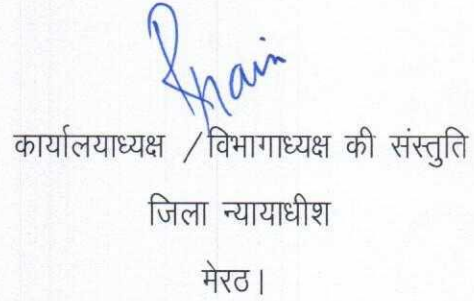 कार्यालयाध्यक्ष / विभागाध्यक्ष की संस्तुति
जिला न्यायाधीश
मेरठ।